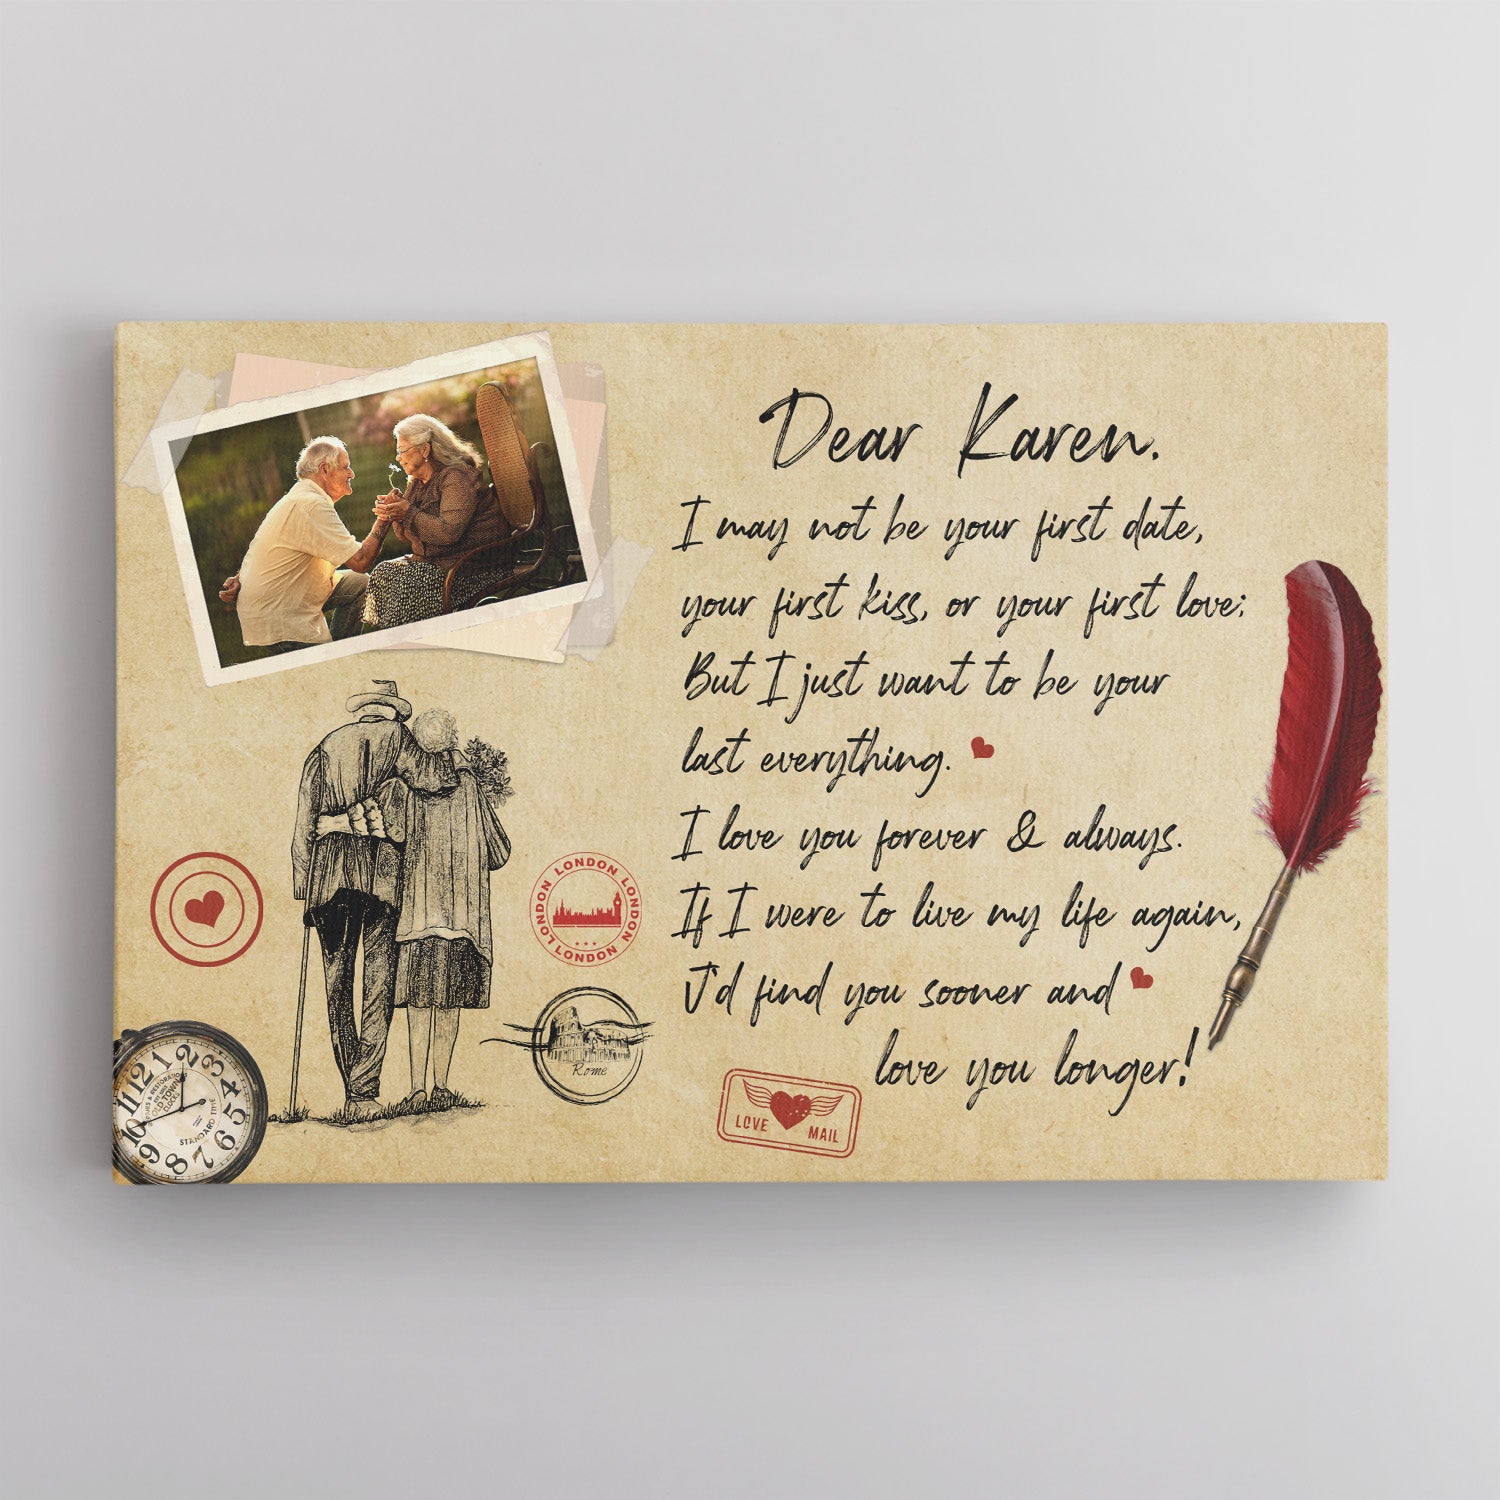 Dear Karen.
I may not be your first date,
your first kiss, or your first love;
But I just want to be your
last everything.
I love you forever & always.
If I were to live my life again,
I'd find you sooner and
love you longer!
LONDON LONDON LONDON LONDON LONDON
Rome
LOVE MAIL
12 1 2 3 4 5 6 7 8 9 10 11
OLD TOWN
CLOCKS
STANDARD TIME